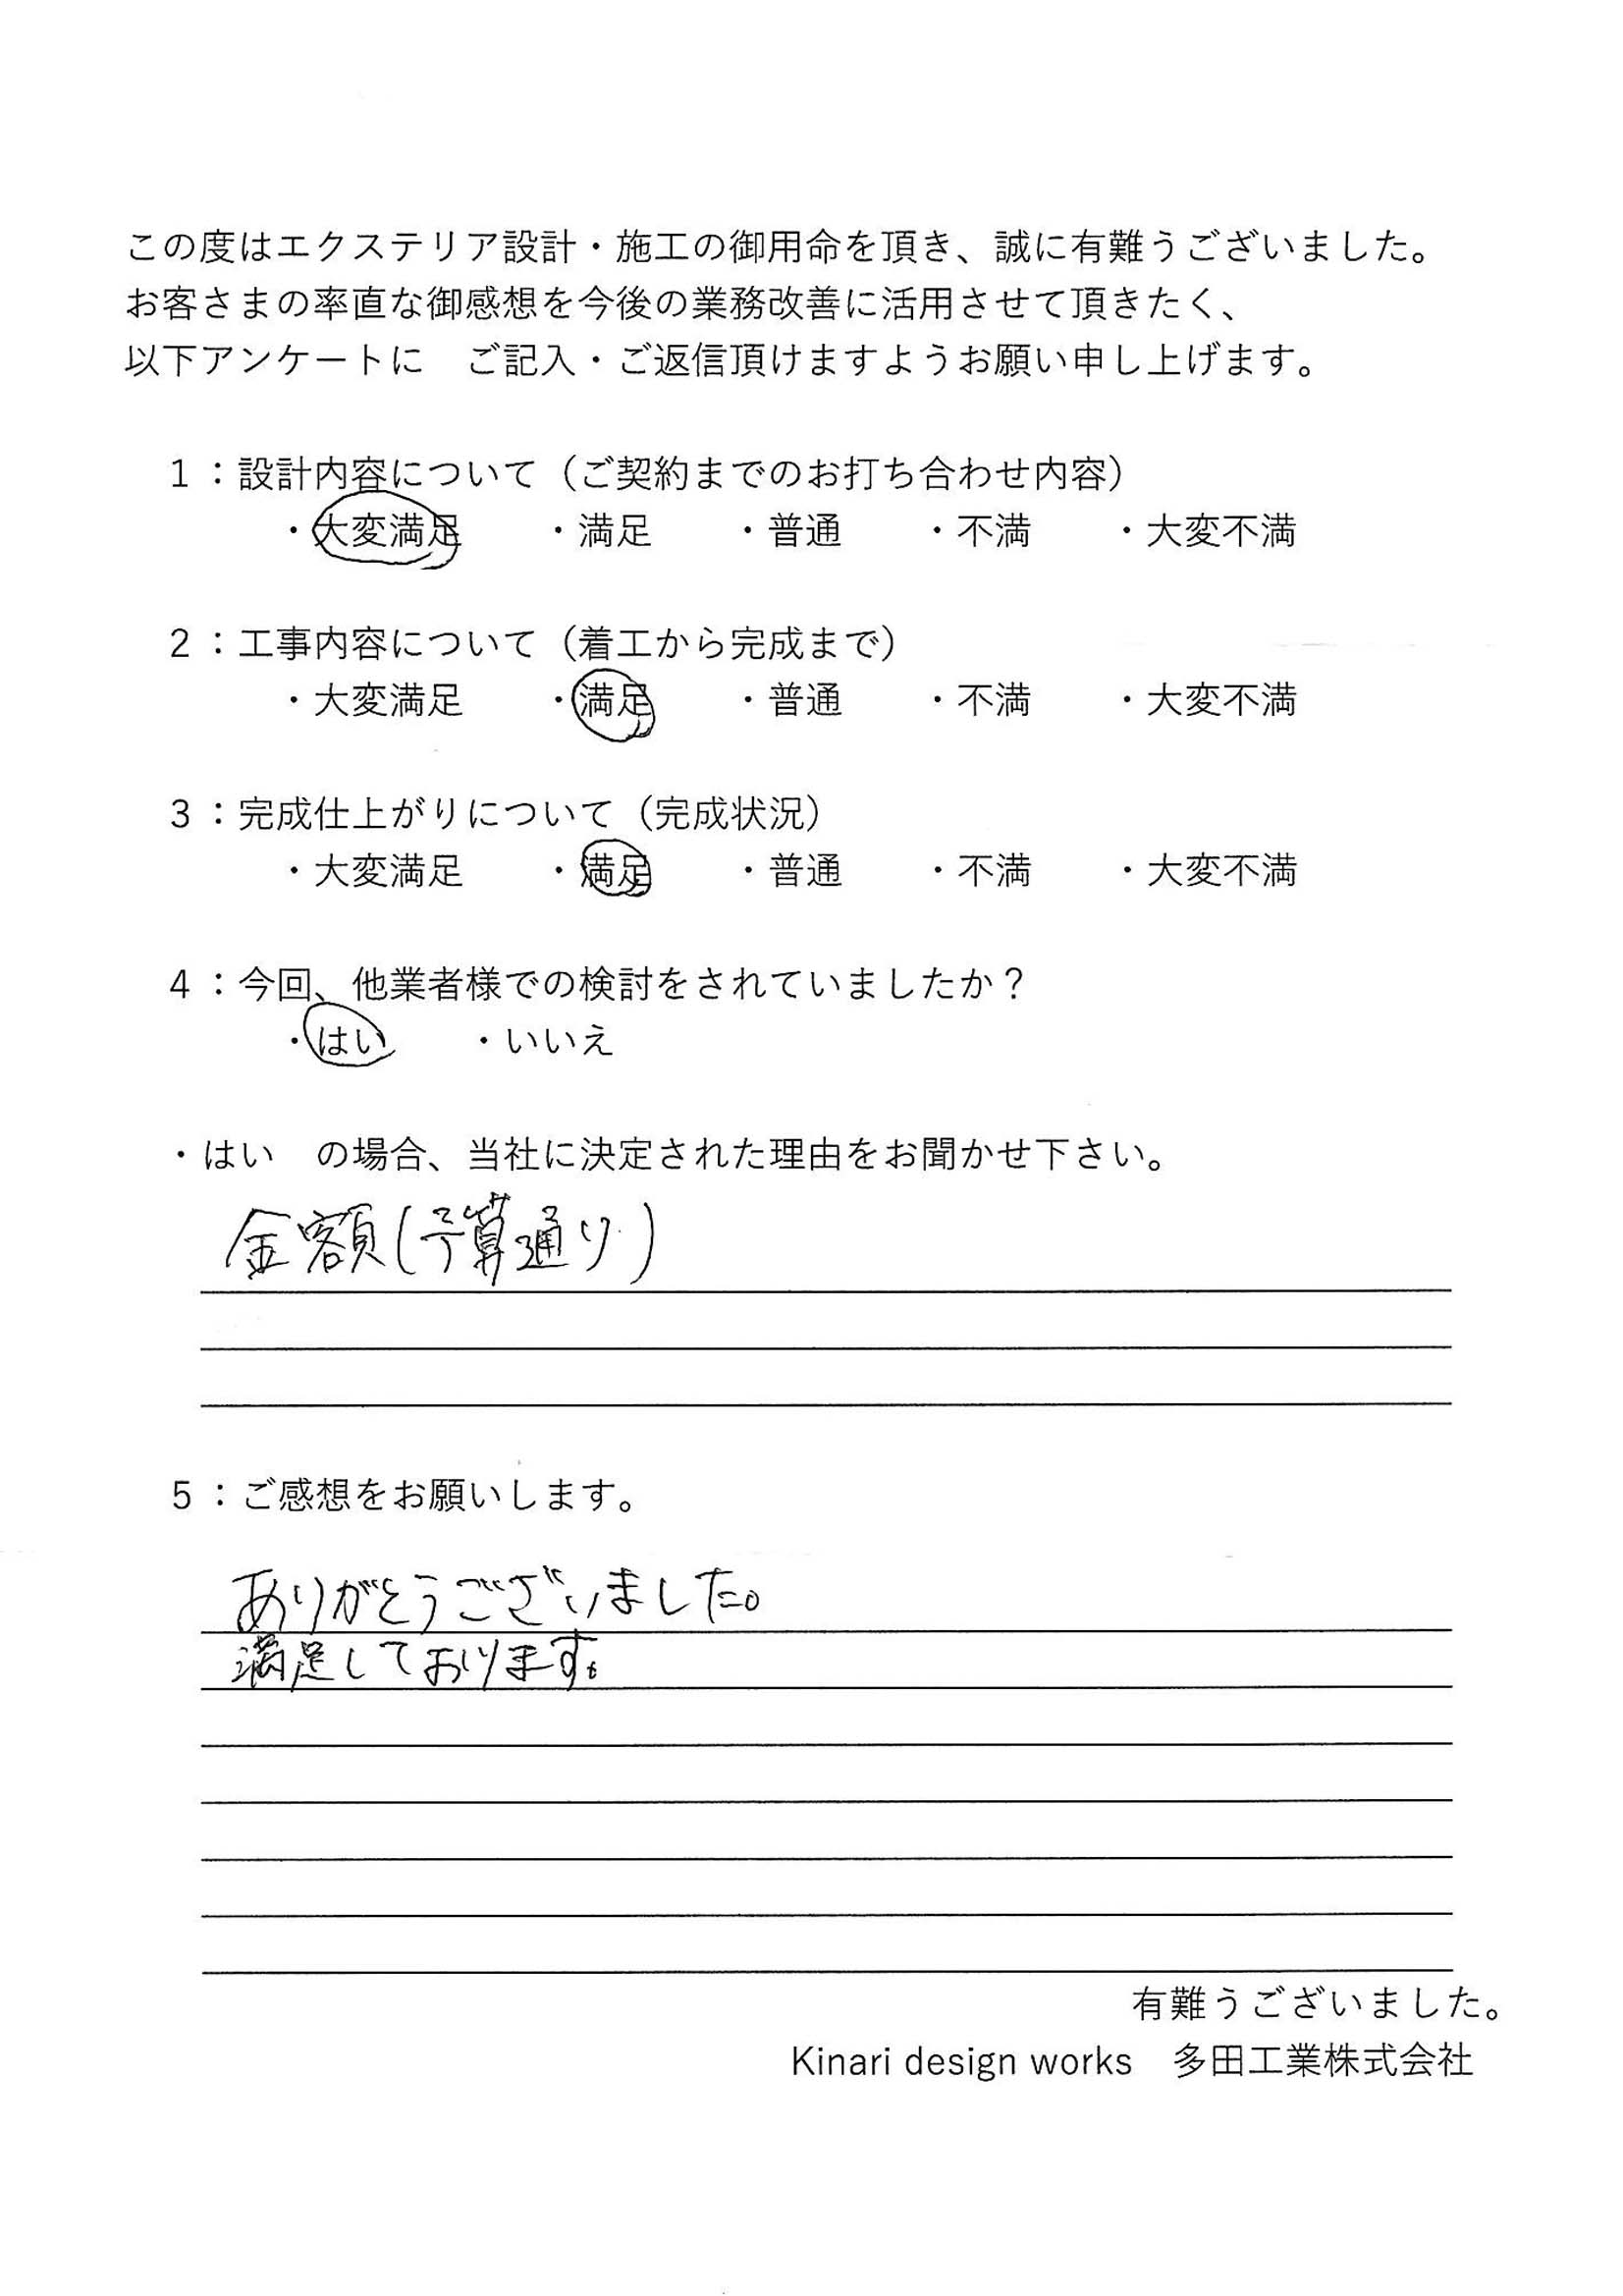 この度はエクステリア設計・施工の御用命を頂き、誠に有難うございました。
お客さまの率直な御感想を今後の業務改善に活用させて頂きたく、
以下アンケートに　ご記入・ご返信頂けますようお願い申し上げます。
１：設計内容について（ご契約までのお打ち合わせ内容）
・大変満足　　・満足　　・普通　　・不満　　・大変不満
２：工事内容について（着工から完成まで）
・大変満足　　・満足　　・普通　　・不満　　・大変不満
３：完成仕上がりについて（完成状況）
・大変満足　　・満足　　・普通　　・不満　　・大変不満
４：今回、他業者様での検討をされていましたか？
・はい　　・いいえ
・はい　の場合、当社に決定された理由をお聞かせ下さい。
金額(予算通り)
５：ご感想をお願いします。
ありがとうございました。
満足しております。
有難うございました。
Kinari design works　多田工業株式会社